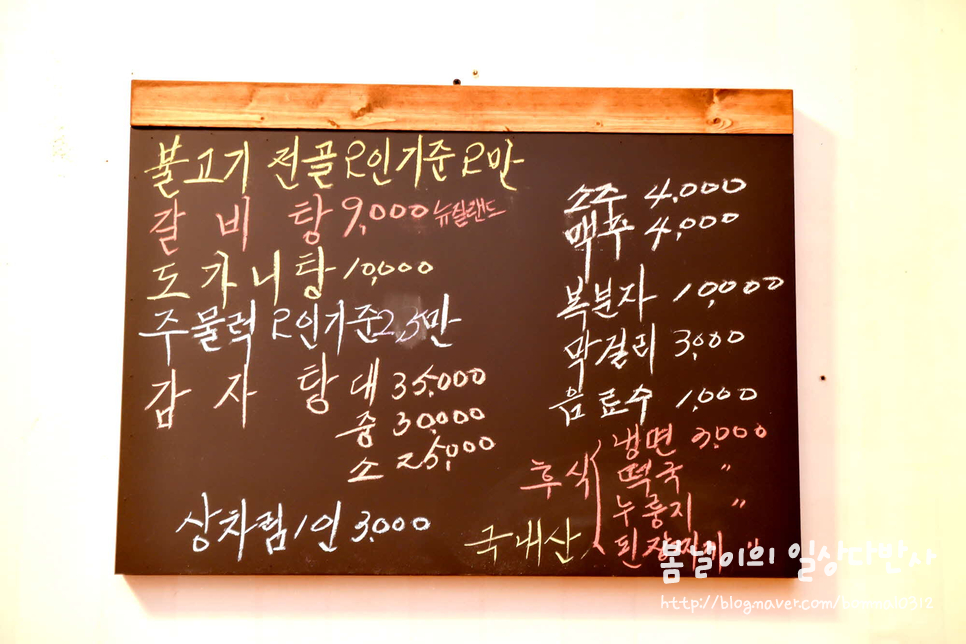 불고기 전골 2인기준 2만
갈비탕 9,000 뉴질랜드
도가니탕 10,000
주물럭 2인기준 2.5만
감자탕 대 35,000
중 30,000
소 25,000
상차림 1인 3,000
소주 4,000
맥주 4,000
복분자 10,000
막걸리 3,000
음료수 1,000
후식 냉면 3,000
떡국 〃
누룽지 〃
된장찌개 〃
국내산
봄날이의 일상다반사